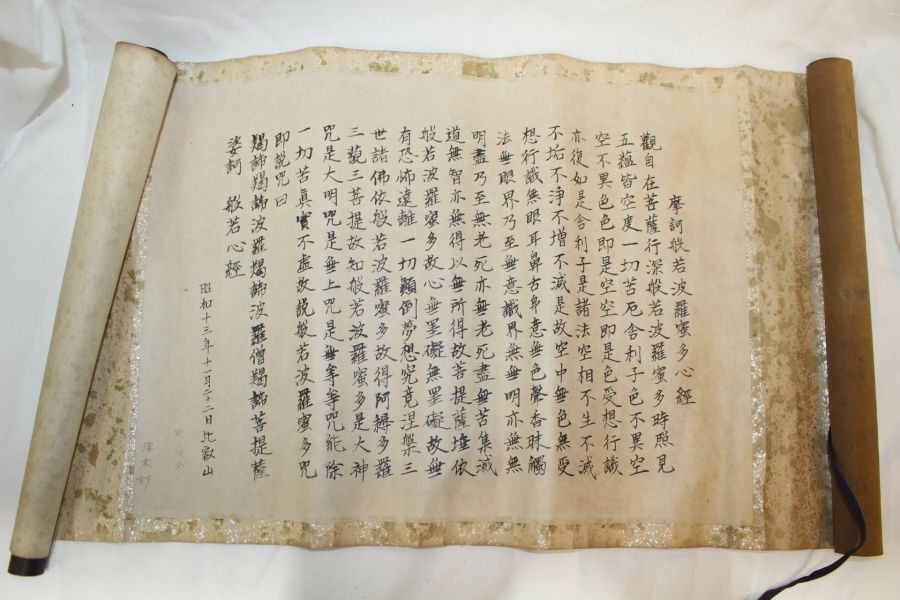 摩訶般若波羅蜜多心經
觀自在菩薩行深般若波羅蜜多時照見
五蘊皆空度一切苦厄舍利子色不異空
空不異色色即是空空即是色受想行識
亦復如是舍利子是諸法空相不生不滅
不垢不淨不增不減是故空中無色無受
想行識無眼耳鼻舌身意無色聲香味觸
法無眼界乃至無意識界無無明亦無無
明盡乃至無老死亦無老死盡無苦集滅
道無智亦無得以無所得故菩提薩埵依
般若波羅蜜多故心無罣礙無罣礙故無
有恐怖遠離一切顛倒夢想究竟涅槃三
世諸佛依般若波羅蜜多故得阿耨多羅
三藐三菩提故知般若波羅蜜多是大神
咒是大明咒是無上咒是無等等咒能除
一切苦真實不虛故説般若波羅蜜多咒
即説咒曰
羯諦羯諦波羅羯諦波羅僧羯諦菩提薩
婆訶 般若心經
昭和十三年十一月二十二日比叡山